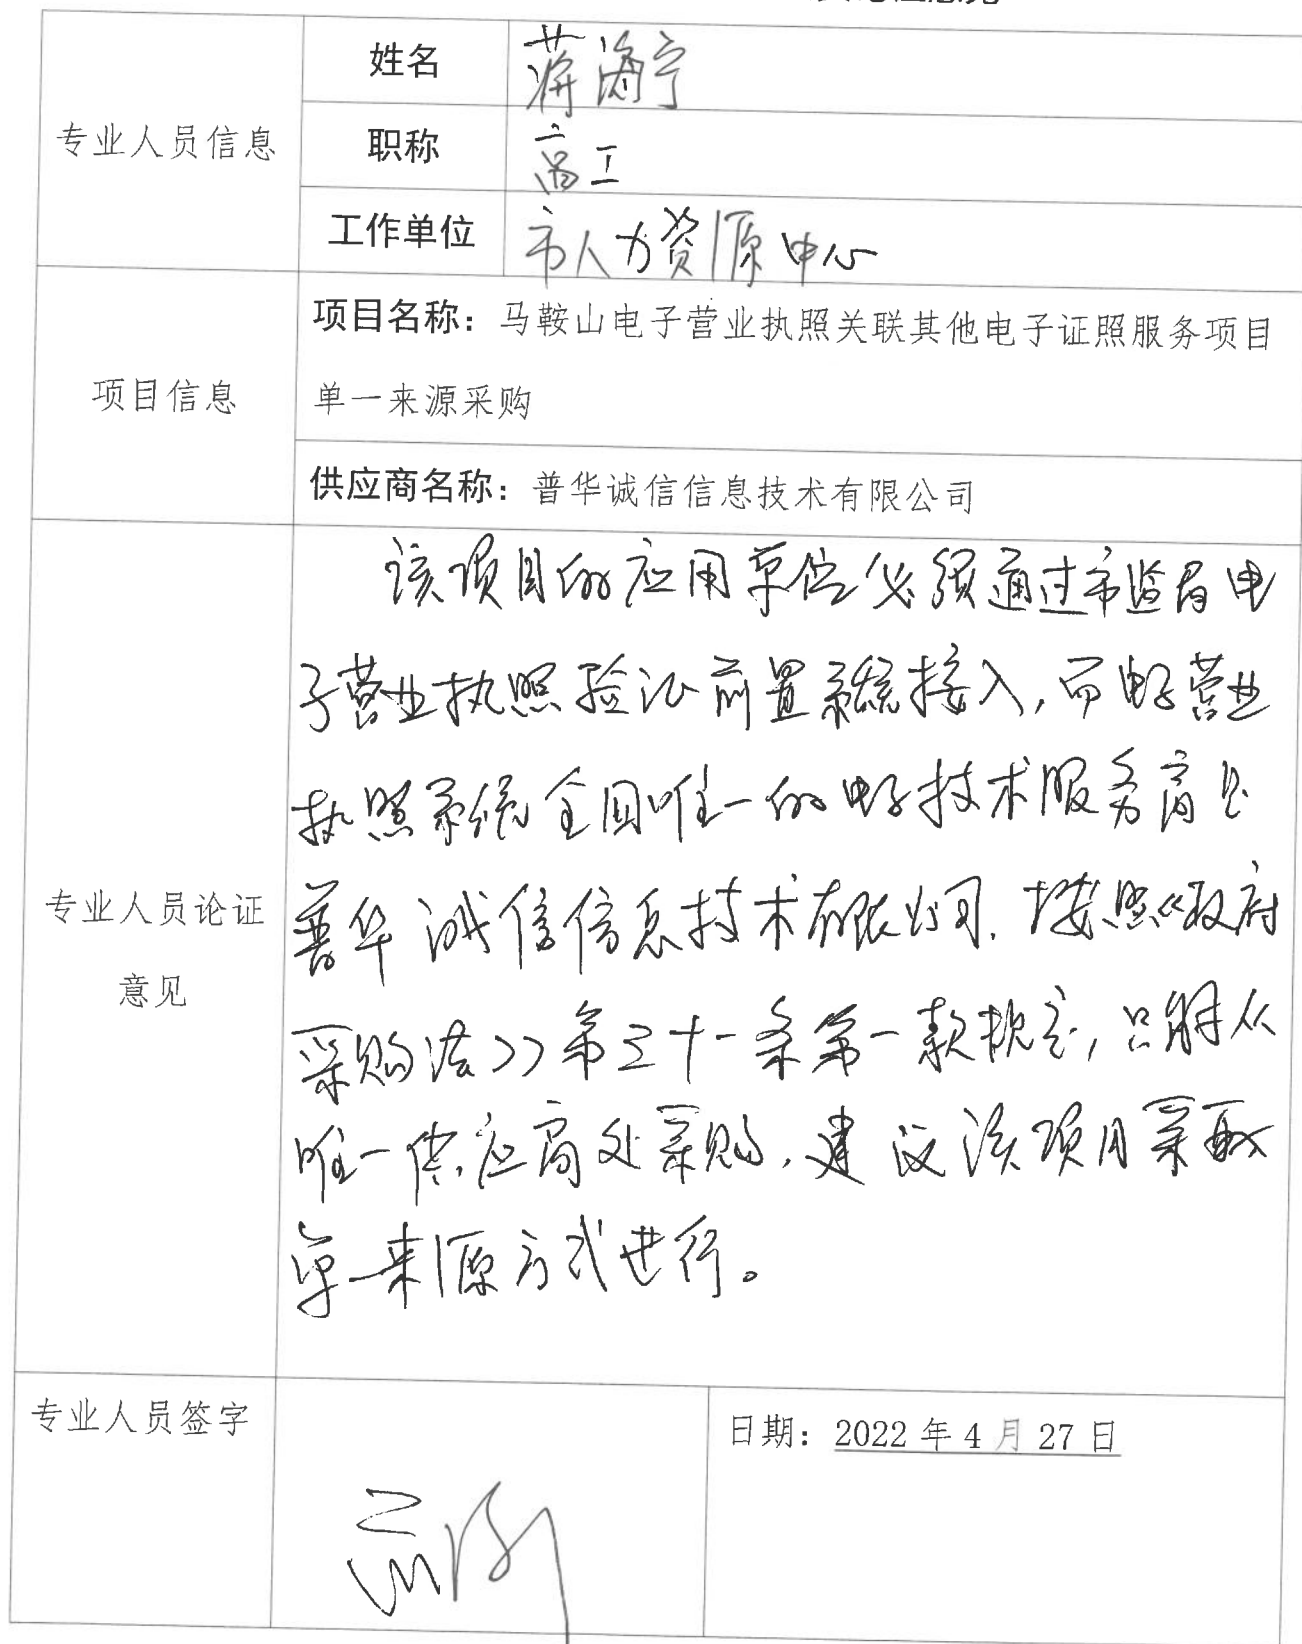 姓名 蒋海宁
专业人员信息 职称 高工
工作单位 市人力资源中心
项目名称：马鞍山电子营业执照关联其他电子证照服务项目
项目信息 单一来源采购
供应商名称：普华诚信信息技术有限公司
该项目的应用单位必须通过市监局电
子营业执照验证前置系统接入，而电子营业
执照系统全国唯一的电子技术服务商是
专业人员论证 普华诚信信息技术有限公司，按照《政府
意见
采购法》第三十一条第一款规定，只能从
唯一供应商处采购，建议该项目采取
单一来源方式进行。
专业人员签字
日期：2022年4月27日